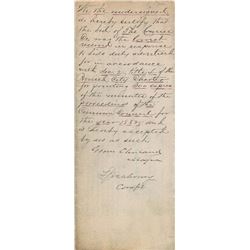 We the undersigned
do hereby certify that
the bid of The Courier
Co was the lowest
received in response
to bids duly advertised
for in accordance
with Sec. 2, Title
City Charter
for printing 300 copies
of the minutes of the
proceedings of the
Common Council for
the year 1882, and
is hereby accepted
by us as such
Grover Cleveland
Mayor
Compt.